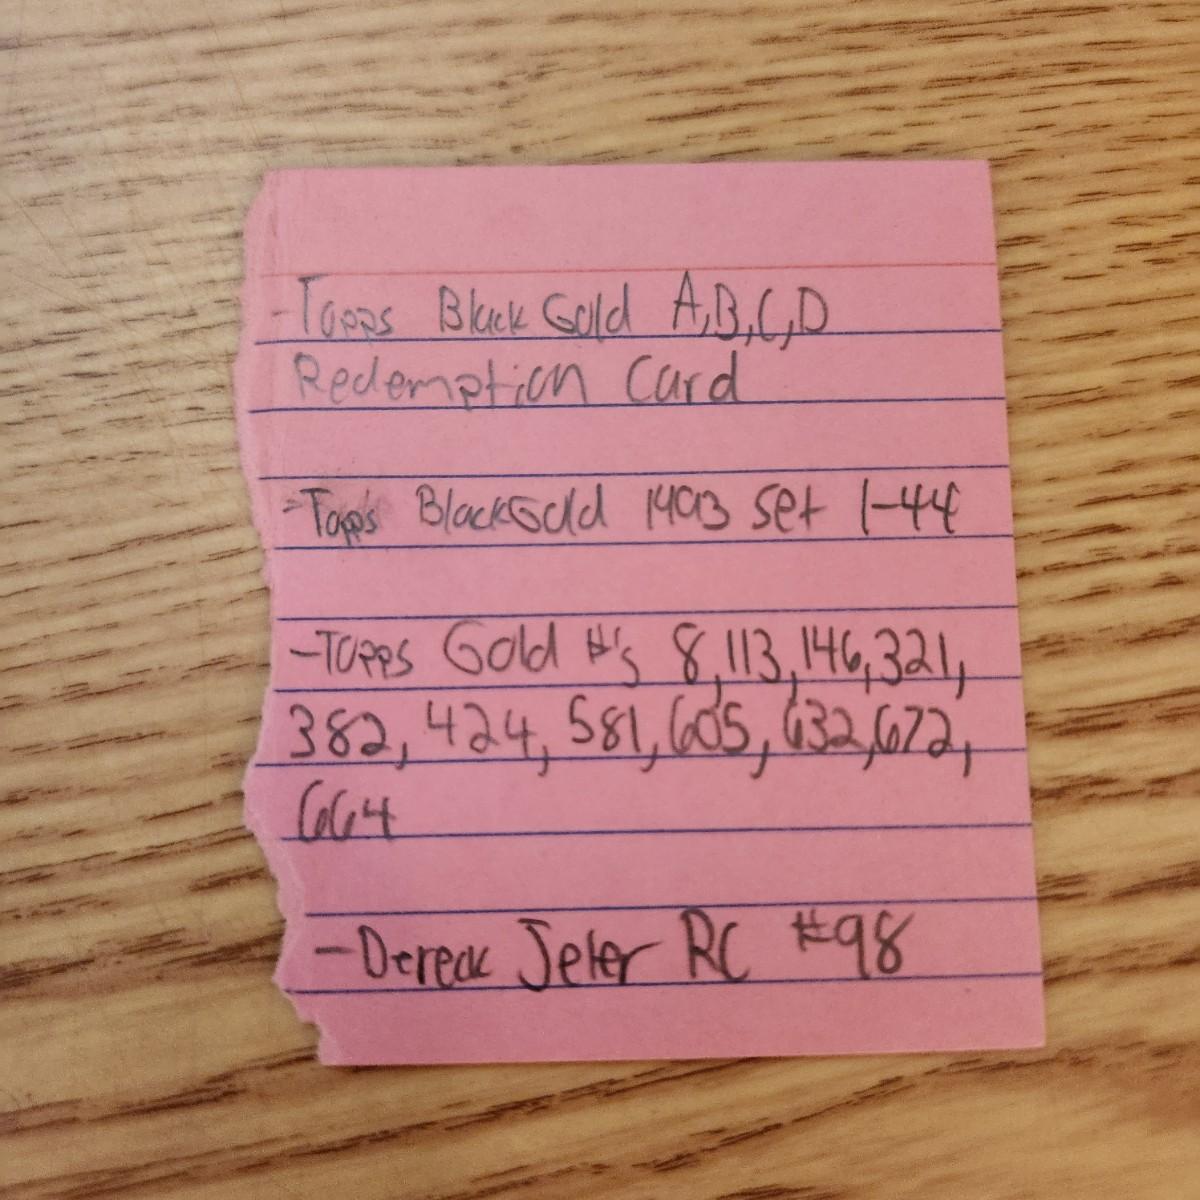 -Topps Black Gold A,B,C,D
Redemption Card
-Topps BlackGold 1993 set 1-44
-Topps Gold #'s 8,113,146,321,
382, 424, 581, 605, 632,672,
664
-Dereck Jeter RC #98